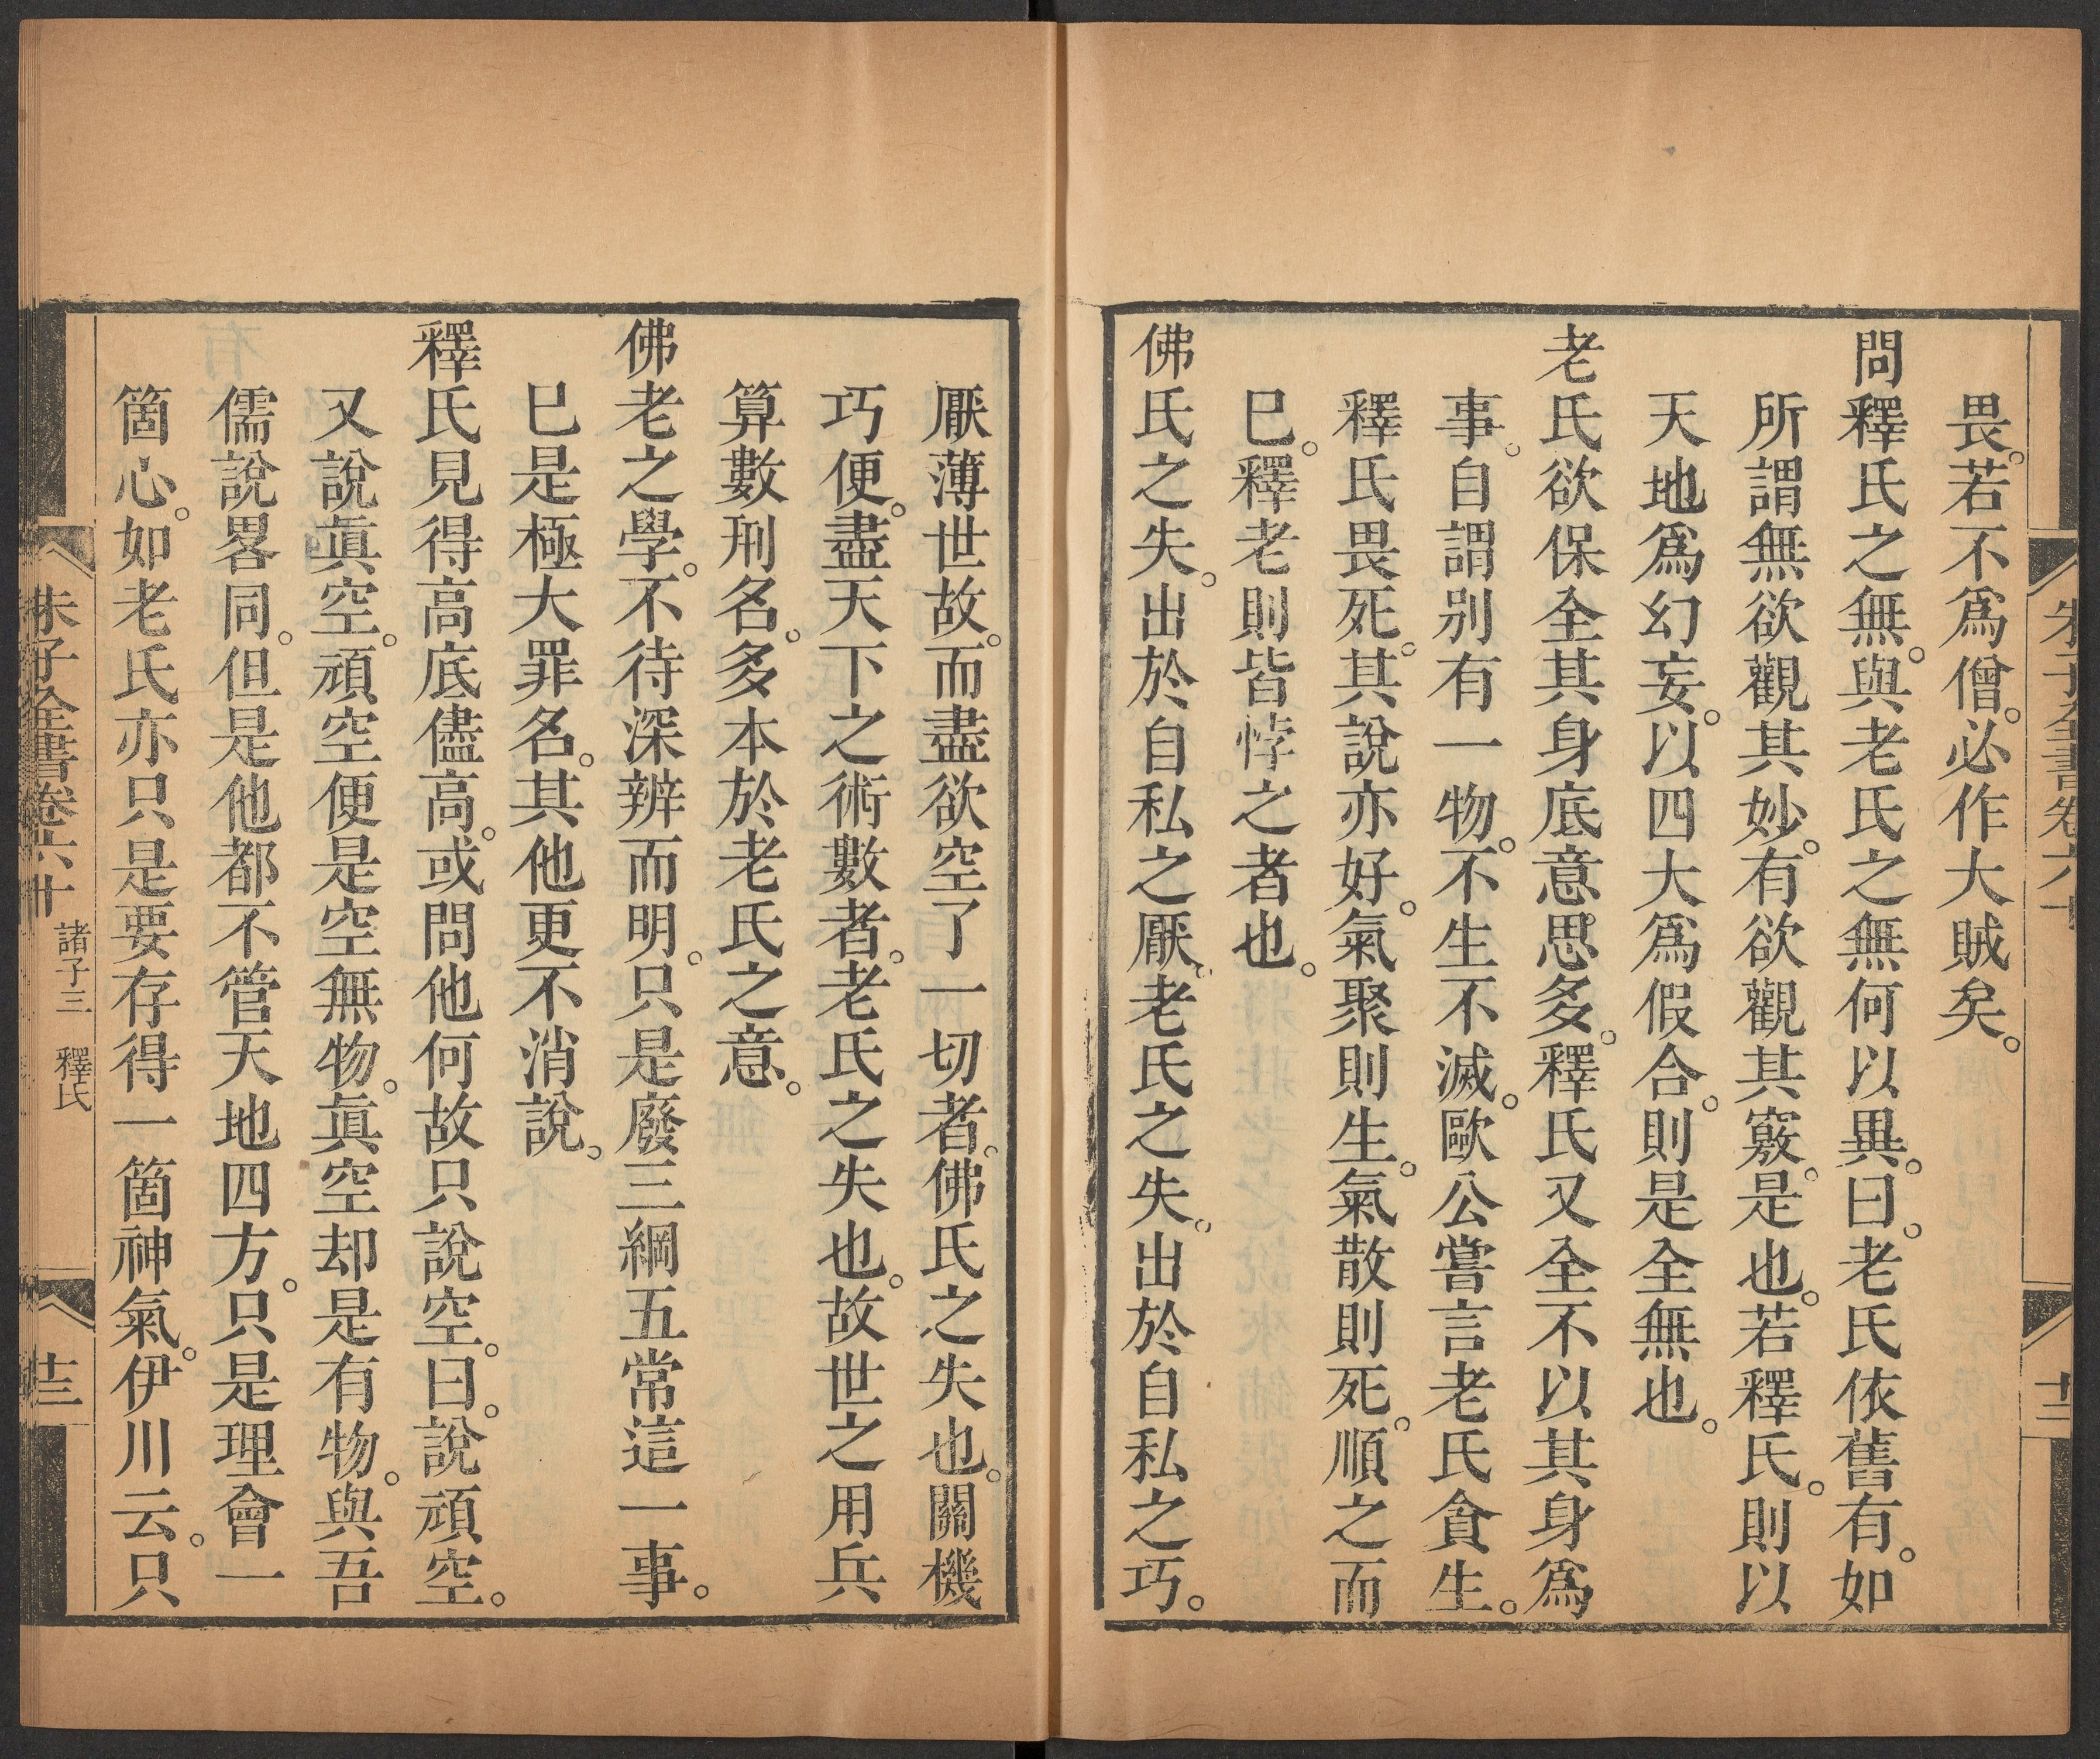 畏。若不爲僧。必作大賊矣。
問釋氏之無。與老氏之無何以異。曰。老氏依舊有。如
所謂無欲觀其妙。有欲觀其竅。是也。若釋氏。則以
天地爲幻妄。以四大爲假合。則是全無也。
老氏欲保全其身底意思多。釋氏又全不以其身爲
事。自謂别有一物。不生不滅。歐公嘗言老氏貪生。
釋氏畏死。其說亦好。氣聚則生。氣散則死。順之而
已。釋老則皆悖之者也。
佛氏之失。出於自私之厭。老氏之失。出於自私之巧。
朱子全書卷六十
十二
厭薄世故。而盡欲空了一切者。佛氏之失也。關機
巧便。盡天下之術數者。老氏之失也。故世之用兵
算數刑名。多本於老氏之意。
佛老之學。不待深辨而明。只是廢三綱五常這一事。
已是極大罪名。其他更不消說。
釋氏見得高底儘高。或問他何故只說空。曰。說頑空。
又說眞空。頑空便是空無物。眞空却是有物。與吾
儒說畧同。但是他都不管天地四方。只是理會一
箇心。如老氏亦只是要存得一箇神氣。伊川云。只
朱子全書卷六十 諸子三 釋氏
十三